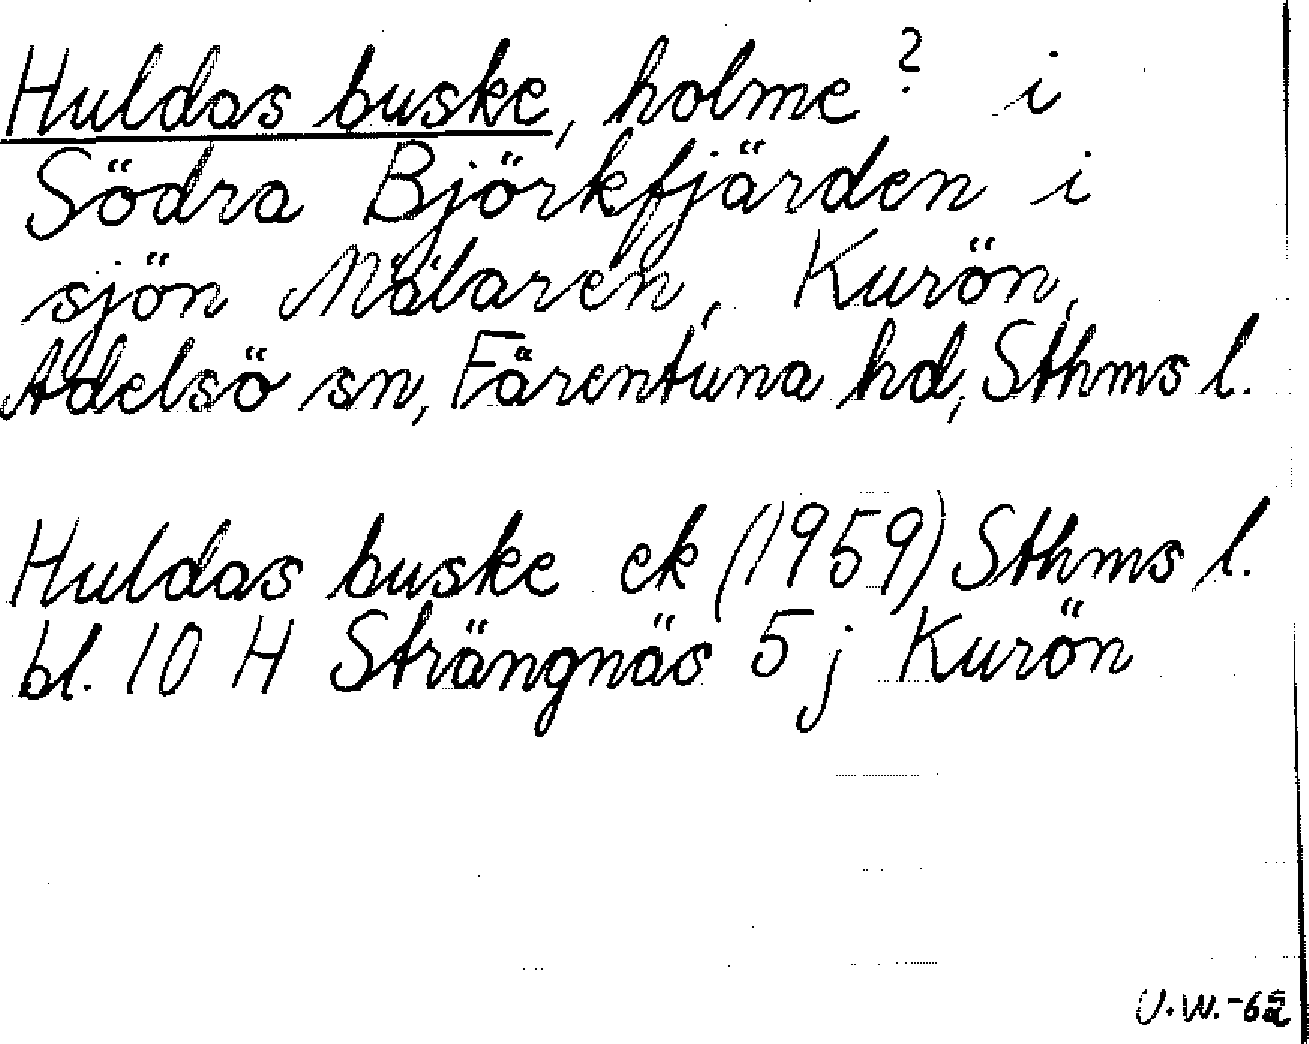 Huldas buske, holme? i
Södra Björkfjärden i
sjön Mälaren, Kurön,
Adelsö sn, Färentuna hd, Sthms l.
Huldas buske ek (1959) Sthms l.
bl. 10 H Strängnäs 5 j Kurön
U.W.